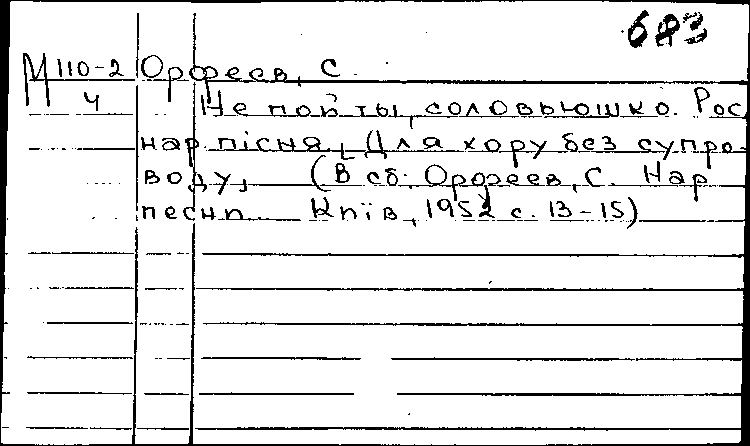 683
М 110-2 Орфеев, С.
4 Не пой ты, соловьюшко. Рос
нар пісня, [Для хору без супро-
воду] (В сб: Орфеев, С. Нар
песни Київ, 1952 с. 13-15)